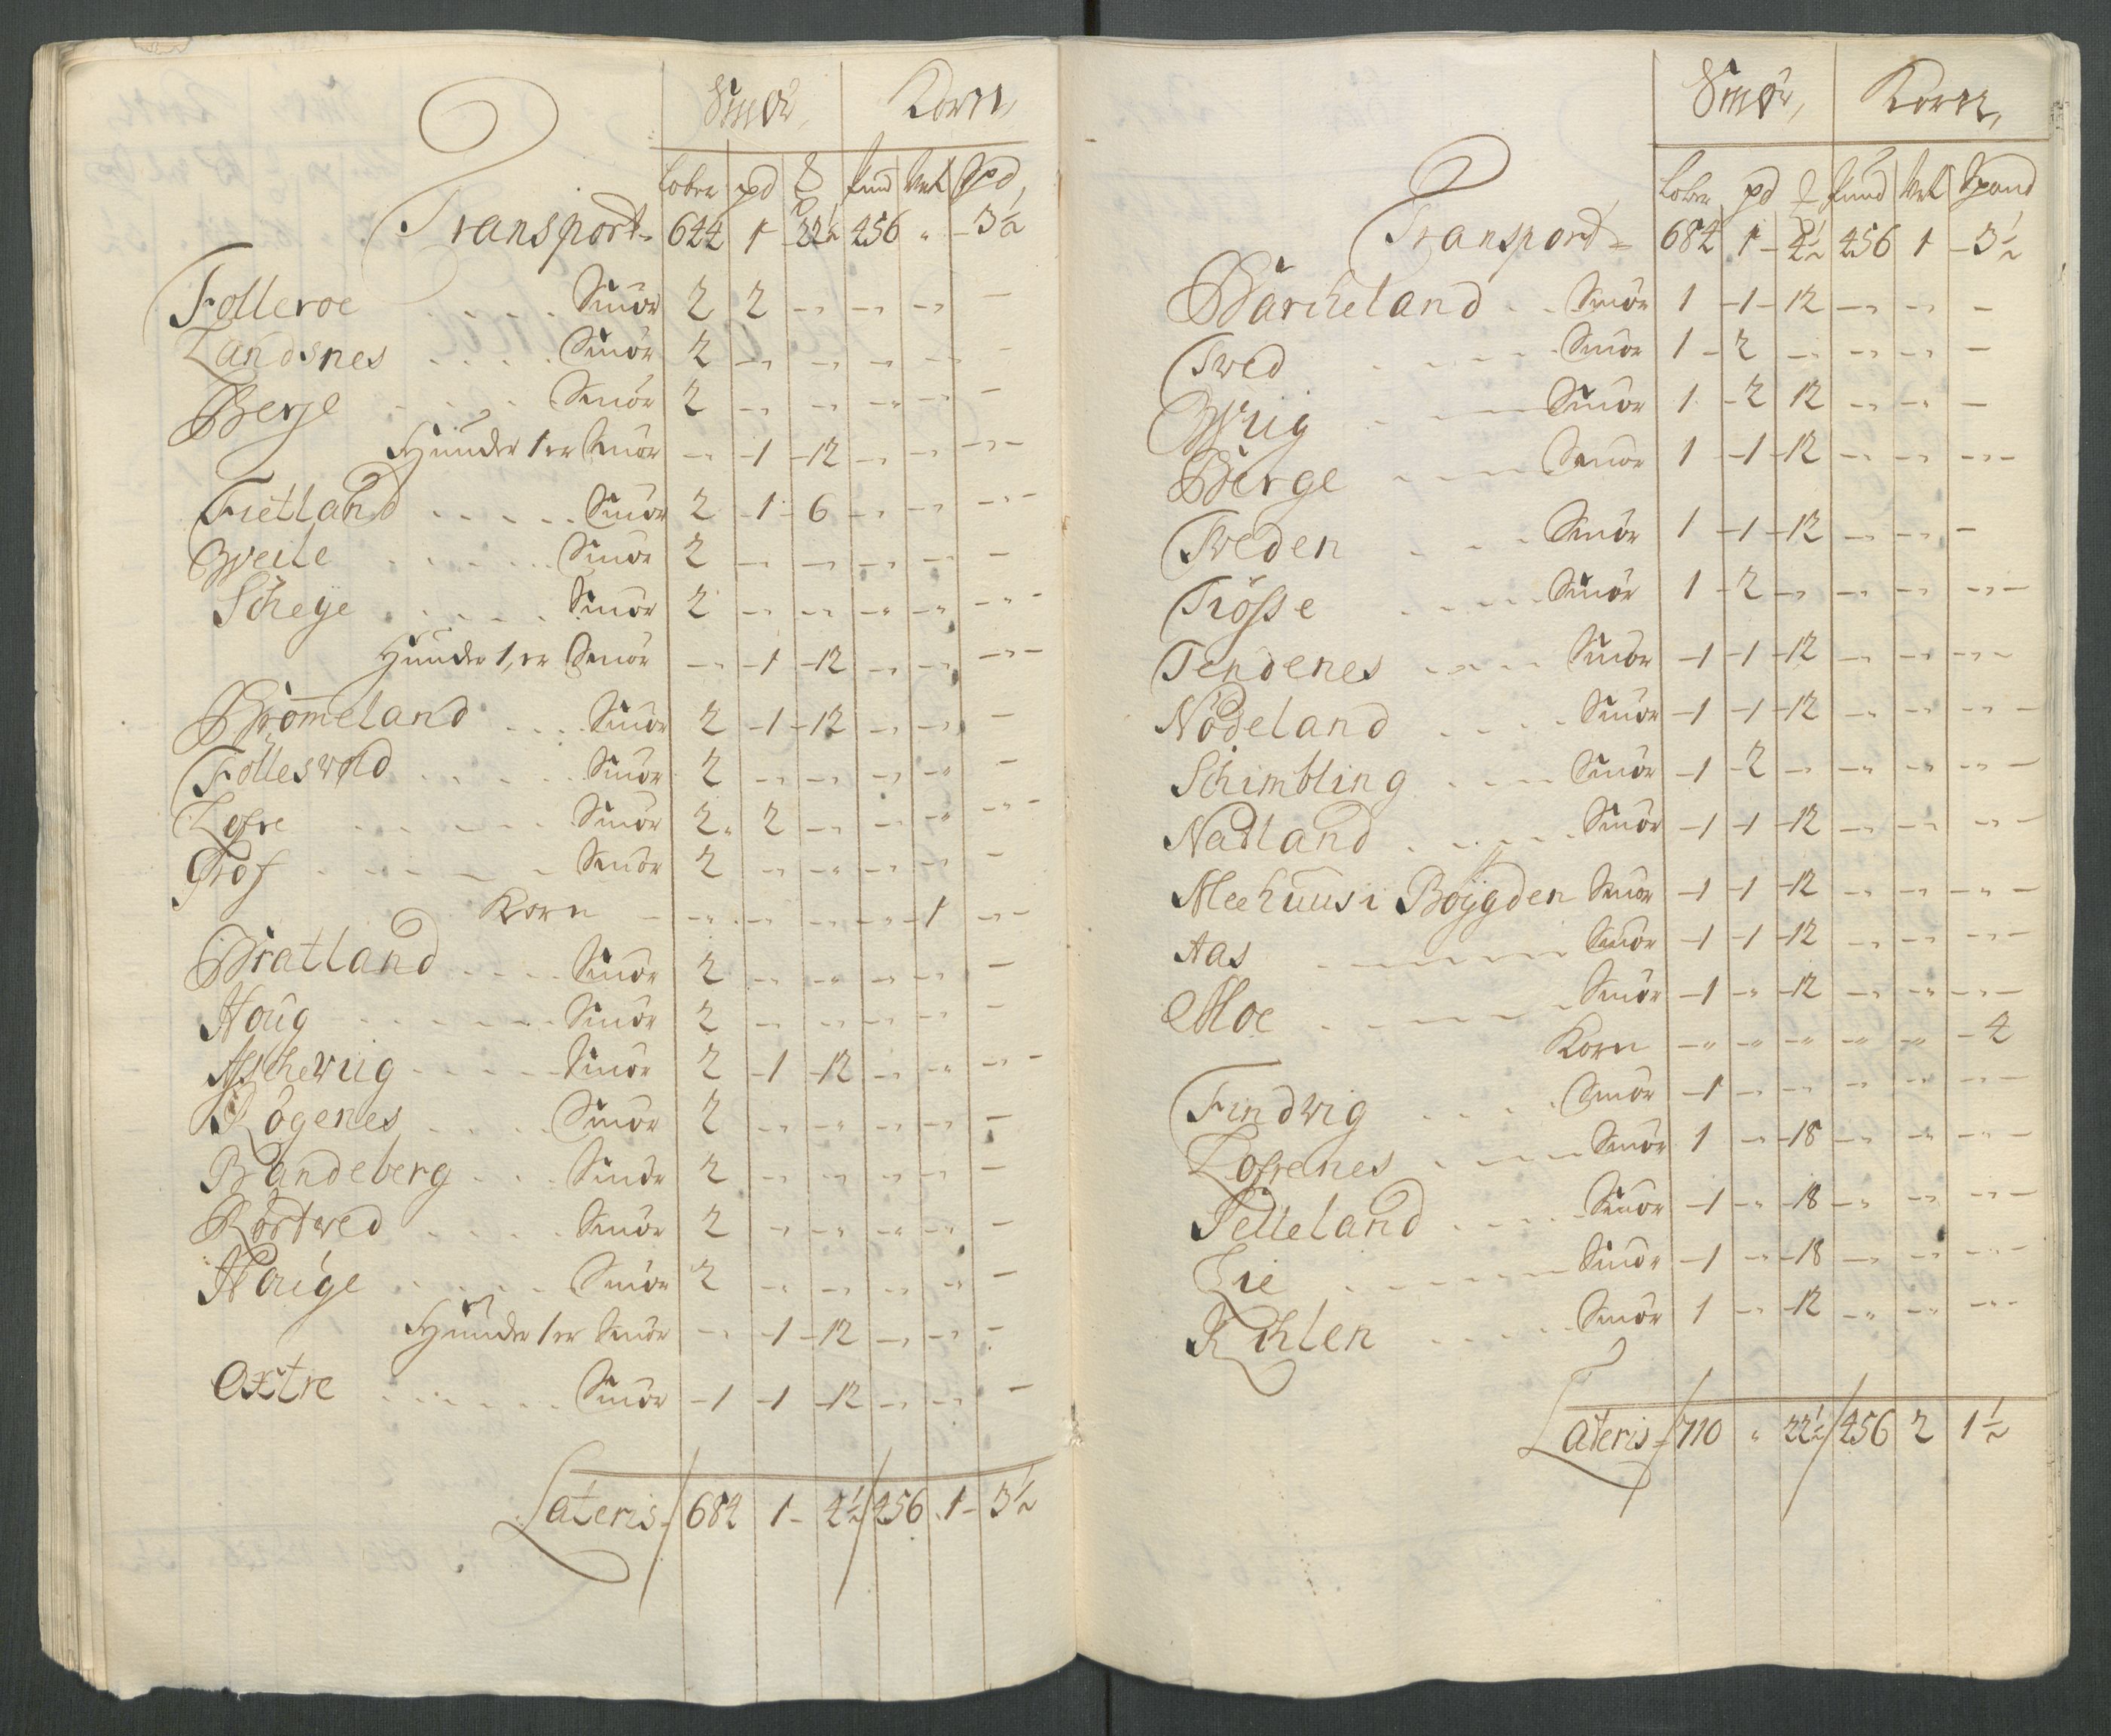 Smör, Korn,
Løber pd ℔ Pund Vet Spd,
Transport- 644 1 - 22½ 456 " - 3½
Folleroe Smör 2 2 -" -" -" -
Landsnes Smör 2 -" -" -" -" -
Berge Smör 2 -" -" -" -" -
Hunder 1 er Smör -" -1 -12 -" -" -"-
Fietland Smör 2 -1- 6 -" -" -"-
Weile Smör 2 -" -" -" -" -
Scheÿe Smör 2 -" -" -" -" -"-
Hunder 1, er Smör -" -1 -12 -" -" -"-
Brömeland Smör 2 -1 -12 -" -" -
Följesvold Smör 2 -" -" -" -" -
Lofre Smör 2" 2 -" -" -" -"-
Grof Smör 2 -" -" -" -" -
Korn -" -" -" -" -1 -"-
Bratland Smör 2 -" -" -" -" -
Houg Smör 2 -" -" -" -" -
Aschevug Smör 2 -1 -12 -" -" -"-
Rögenes Smör 2 -" -" -" -" -
Bandeberg Smör 2 -" -" -" -" -
Körtwed Smör 2 -" -" -" -" -
Houge Smör 2 -" -" -" -" -
Hunder 1 er Smör -" -1 -12 -" -" -
Oxtre Smör -1 -1 -12 -" -" -
Lateris- 684 1- 4½ 456 1- 3½
Smör, Korn,
Løber pd ℔ Pund Vet Spand
Transport= 684 1- 4½ 456 1 -3½
Barcheland Smör 1 -1- 12 -" -" -
Tved Smör 1 - 2 -" -" -" -
Wiig Smör 1 -2 12 -" -" -
Berge Smör 1 -1 -12 -" -" -"-
Tveden Smör 1 -1 -12 -" -" -
Tiösse Smör 1 -2 -" -" -" -"-
Tendenes Smör -1 -1 -12 -" -" -"-
Nödeland Smör -1 -1 -12 -" -" -"-
Schimbling Smör -1 -2 -" -" -" -"-
Nadland Smör -1 -1 -12 -" -" -"-
Meehuus i Boÿgden Smör -1 -1 -12 -" -" -"-
Aas Smör -1 -1 -12 -" -" -"-
Moe Smör -1 -" -12 -" -" -"-
Korn -" -" -" -" -" -4
Findvig Smör -1 -" -" -" -" -"-
Lofrenes Smör 1 -" -18 -" -" -"-
Pelleland Smör -1 -" -18 -" -" -"-
Lie Smör -1 -" -18 -" -" -"-
Kihlen Smör 1 -" -12 -" -" -"-
Lateris= 710 " 22½ 456 2 1½